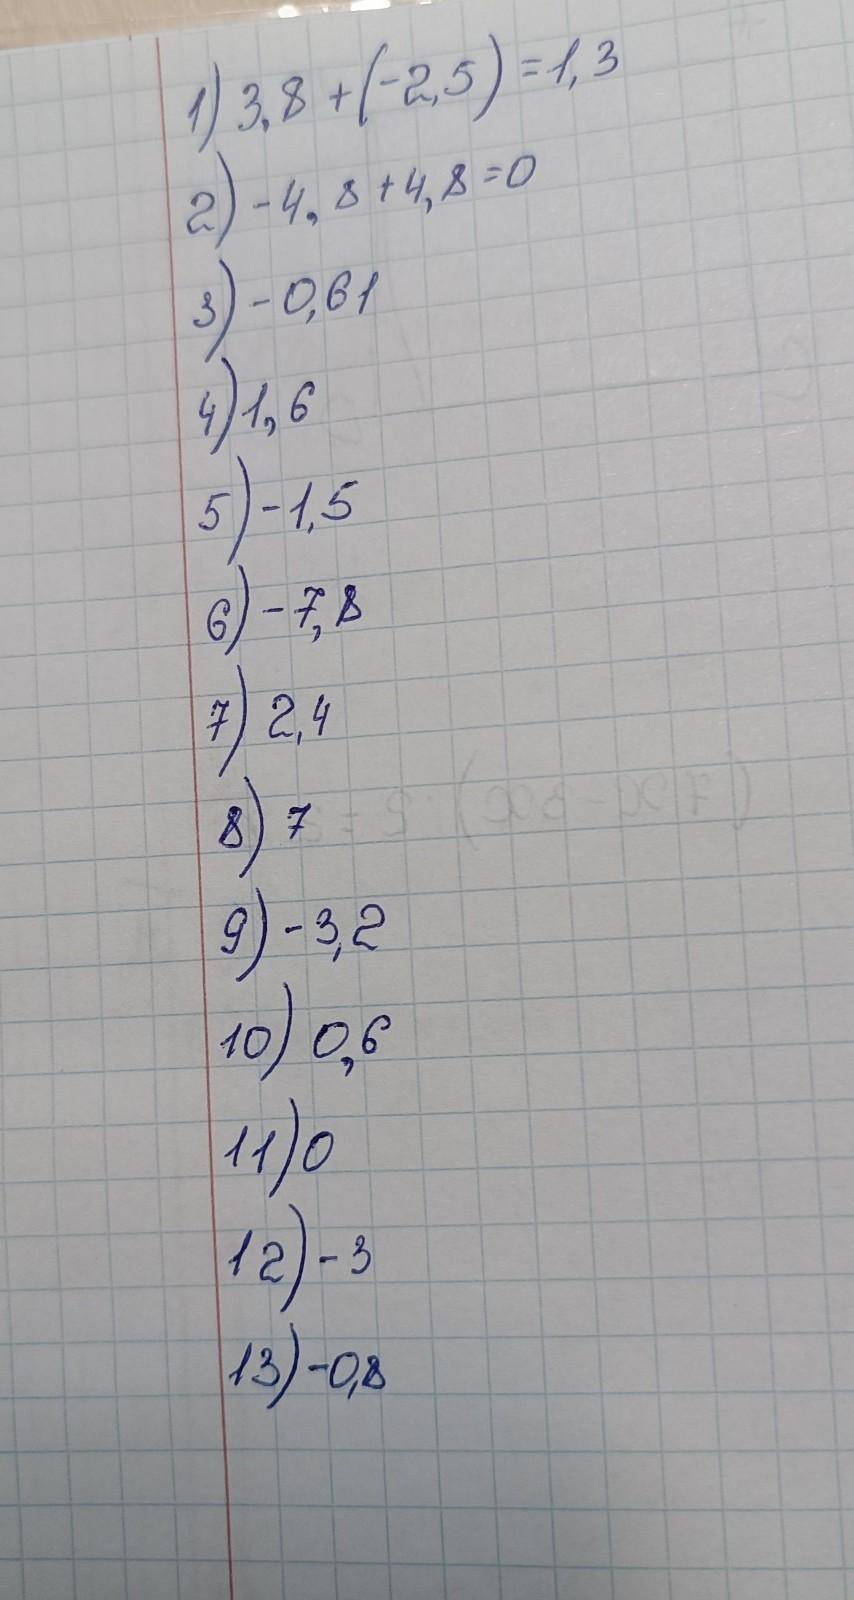 1) 3,8 + (-2,5) = 1,3
2) -4,8 + 4,8 = 0
3) -0,61
4) 1,6
5) -1,5
6) -7,8
7) 2,4
8) 7
9) -3,2
10) 0,6
11) 0
12) -3
13) -0,8